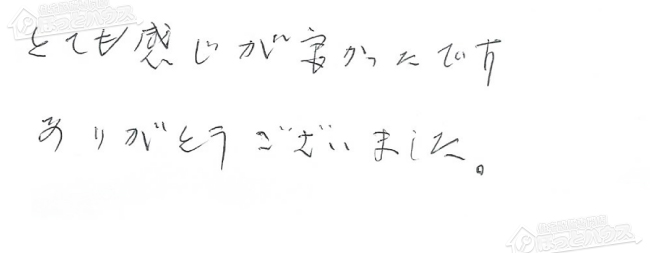 とても感じが良かったです
ありがとうございました。